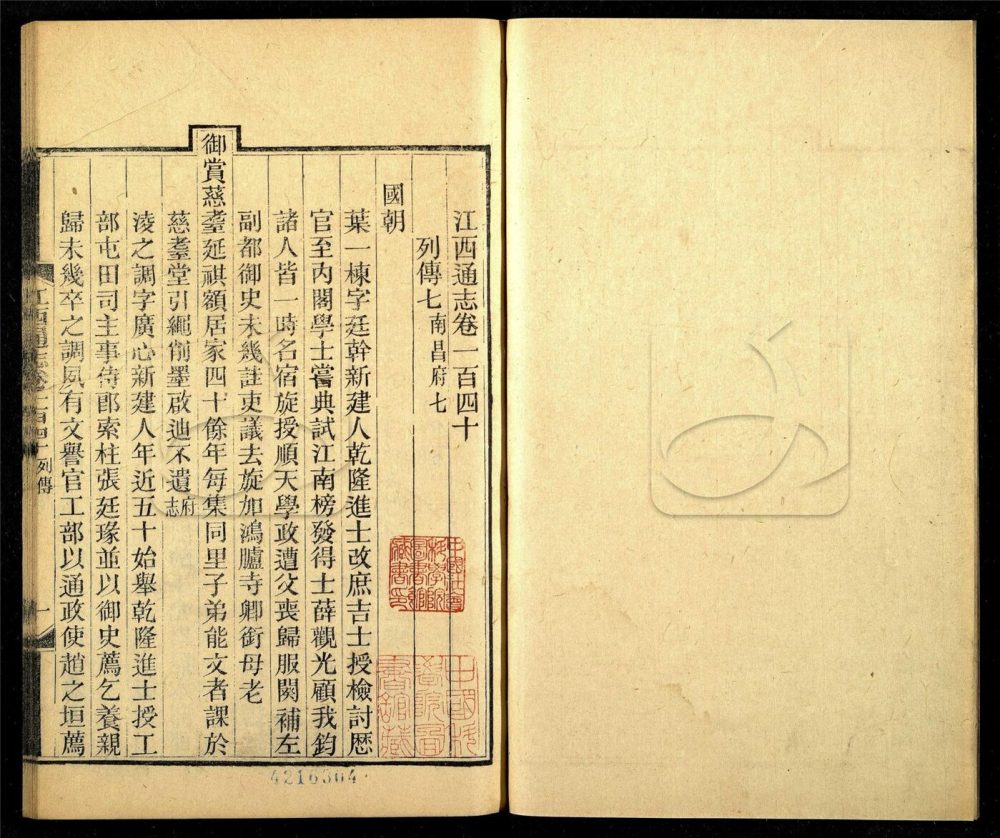 江西通志卷一百四十
列傳七 南昌府七
國朝
葉一棟字廷幹新建人乾隆進士改庶吉士授檢討歷
官至內閣學士嘗典試江南榜發得士薛觀光顧我鈞
諸人皆一時名宿旋授順天學政遭父喪歸服闋補左
副都御史未幾詿吏議去旋加鴻臚寺卿銜母老
御賞慈耋延祺額居家四十餘年每集同里子弟能文者課於
慈耋堂引繩削墨啟迪不遺 府志
淩之調字廣心新建人年近五十始舉乾隆進士授工
部屯田司主事侍郎索柱張廷瑑並以御史薦乞養親
歸未幾卒之調夙有文譽官工部以通政使趙之垣薦
江西通志卷一百四十 列傳
一
中國社會科學院圖書館藏書印
中國科學院圖書館藏
4216304